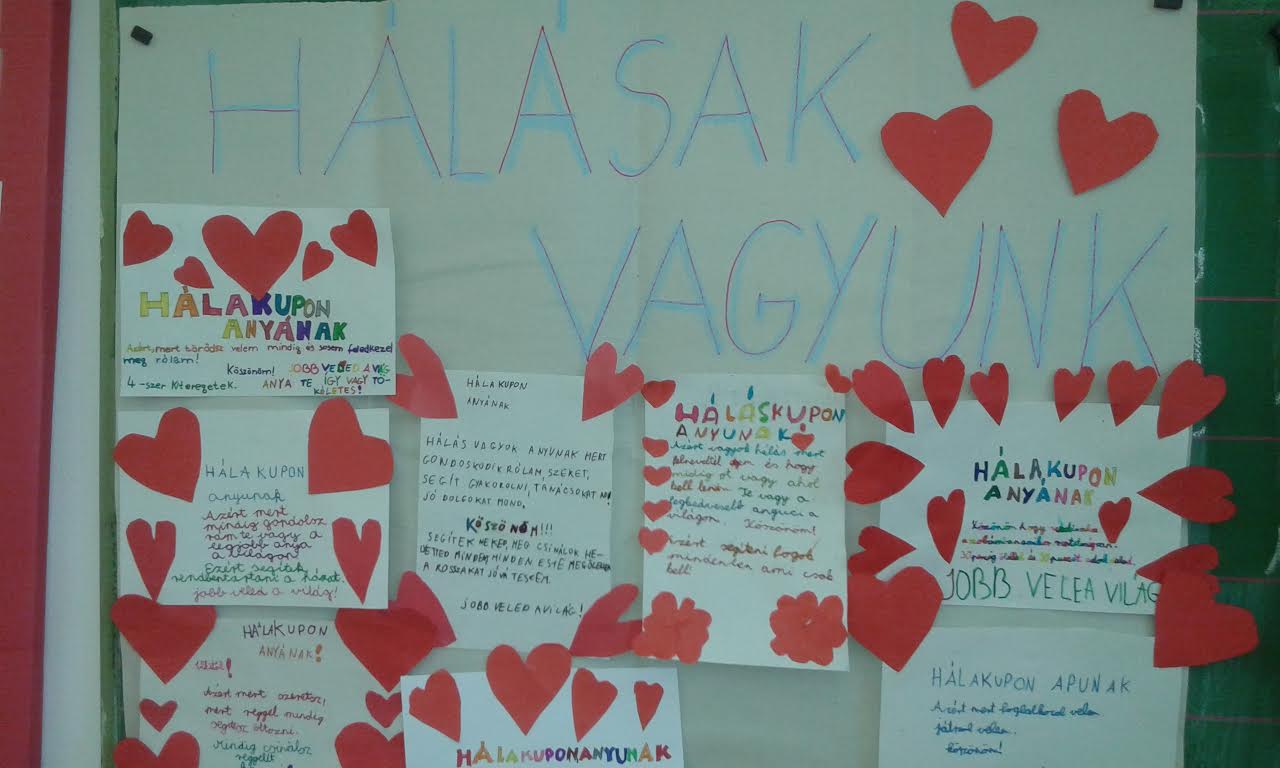 HÁLÁSAK
VAGYUNK
HÁLAKUPON
ANYÁNAK
Azért, mert törődsz velem mindig és sosem feledkezel
meg rólam!
Köszönöm!
4-szer kiteregetek.
JOBB VELED A VILÁG
ANYA TE ÍGY VAGY TÖ-
KÉLETES!
HÁLAKUPON
anyunak
Azért mert
mindig gondolsz
rám te vagy a
legjobb anya
a világon!
Ezért segítek
rendbentartani a házat.
jobb veled a világ!
HÁLAKUPON
ANYÁNAK!
Azért mert szeretsz,
mert reggel mindig
segítesz öltözni.
Mindig csinálsz
reggelit
HÁLAKUPON
ANYÁNAK
HÁLÁS VAGYOK ANYUNAK MERT
GONDOSKODIK RÓLAM, SZERET,
SEGÍT GYAKOROLNI, TANÁCSOKAT
JÓ DOLGOKAT MOND,
KÖSZÖNÖM!!!
SEGÍTEK NEKED, MEG CSINÁLOK HE-
LYETTED MINDENT, MINDEN ESTE
A ROSSZAKAT JÓVÁ TESZEM.
JOBB VELED A VILÁG!
HÁLAKUPONANYUNAK
HÁLÁSKUPON
ANYUNAK
Azért vagyok hálás mert
felneveltél és hogy
mindig ot vagy ahol
kell lenni Te vagy a
legkedvesebb anyuci a
világon. Köszönöm!
Azért segíteni fogok
mindenben ami csak
kell!
HÁLAKUPON
ANYÁNAK
Köszönöm hogy
JOBB VELEA VILÁG
HÁLAKUPON APUNAK
Azért mert foglalkozol velem
játszol velem.
köszönöm!